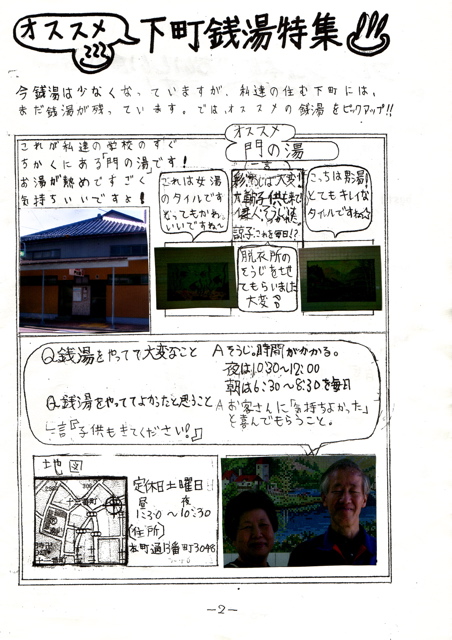 オススメ
下町銭湯特集
今銭湯は少なくなっていますが、私達の住む下町には、
まだ銭湯が残っています。では、オススメの銭湯をピックアップ!!
オススメ
門の湯
これが私達の学校のすぐ
ちかくにある「門の湯」です!
お湯が熱めですごく
気持ちいいですよ!
これは女湯
のタイルです
とってもかわ
いいですね〜
一言
こっちは男湯!
とてもキレイな
タイルですね☆
脱衣所の
そうじを地
てもらいました
大変
Q.銭湯をやってて大変なこと
A そうじ。時間がかかる。
夜は10:30〜12:00
朝は6:30〜8:30を毎日
Q.銭湯をやっててよかったと思うこと
A お客さんに「気持ちよかった」
と喜んでもらうこと。
一言『子供もきてください!』
地図
定休日土曜日
昼 夜
1:30〜10:30
(住所)
本町通13番町3048
十二番町
—2—